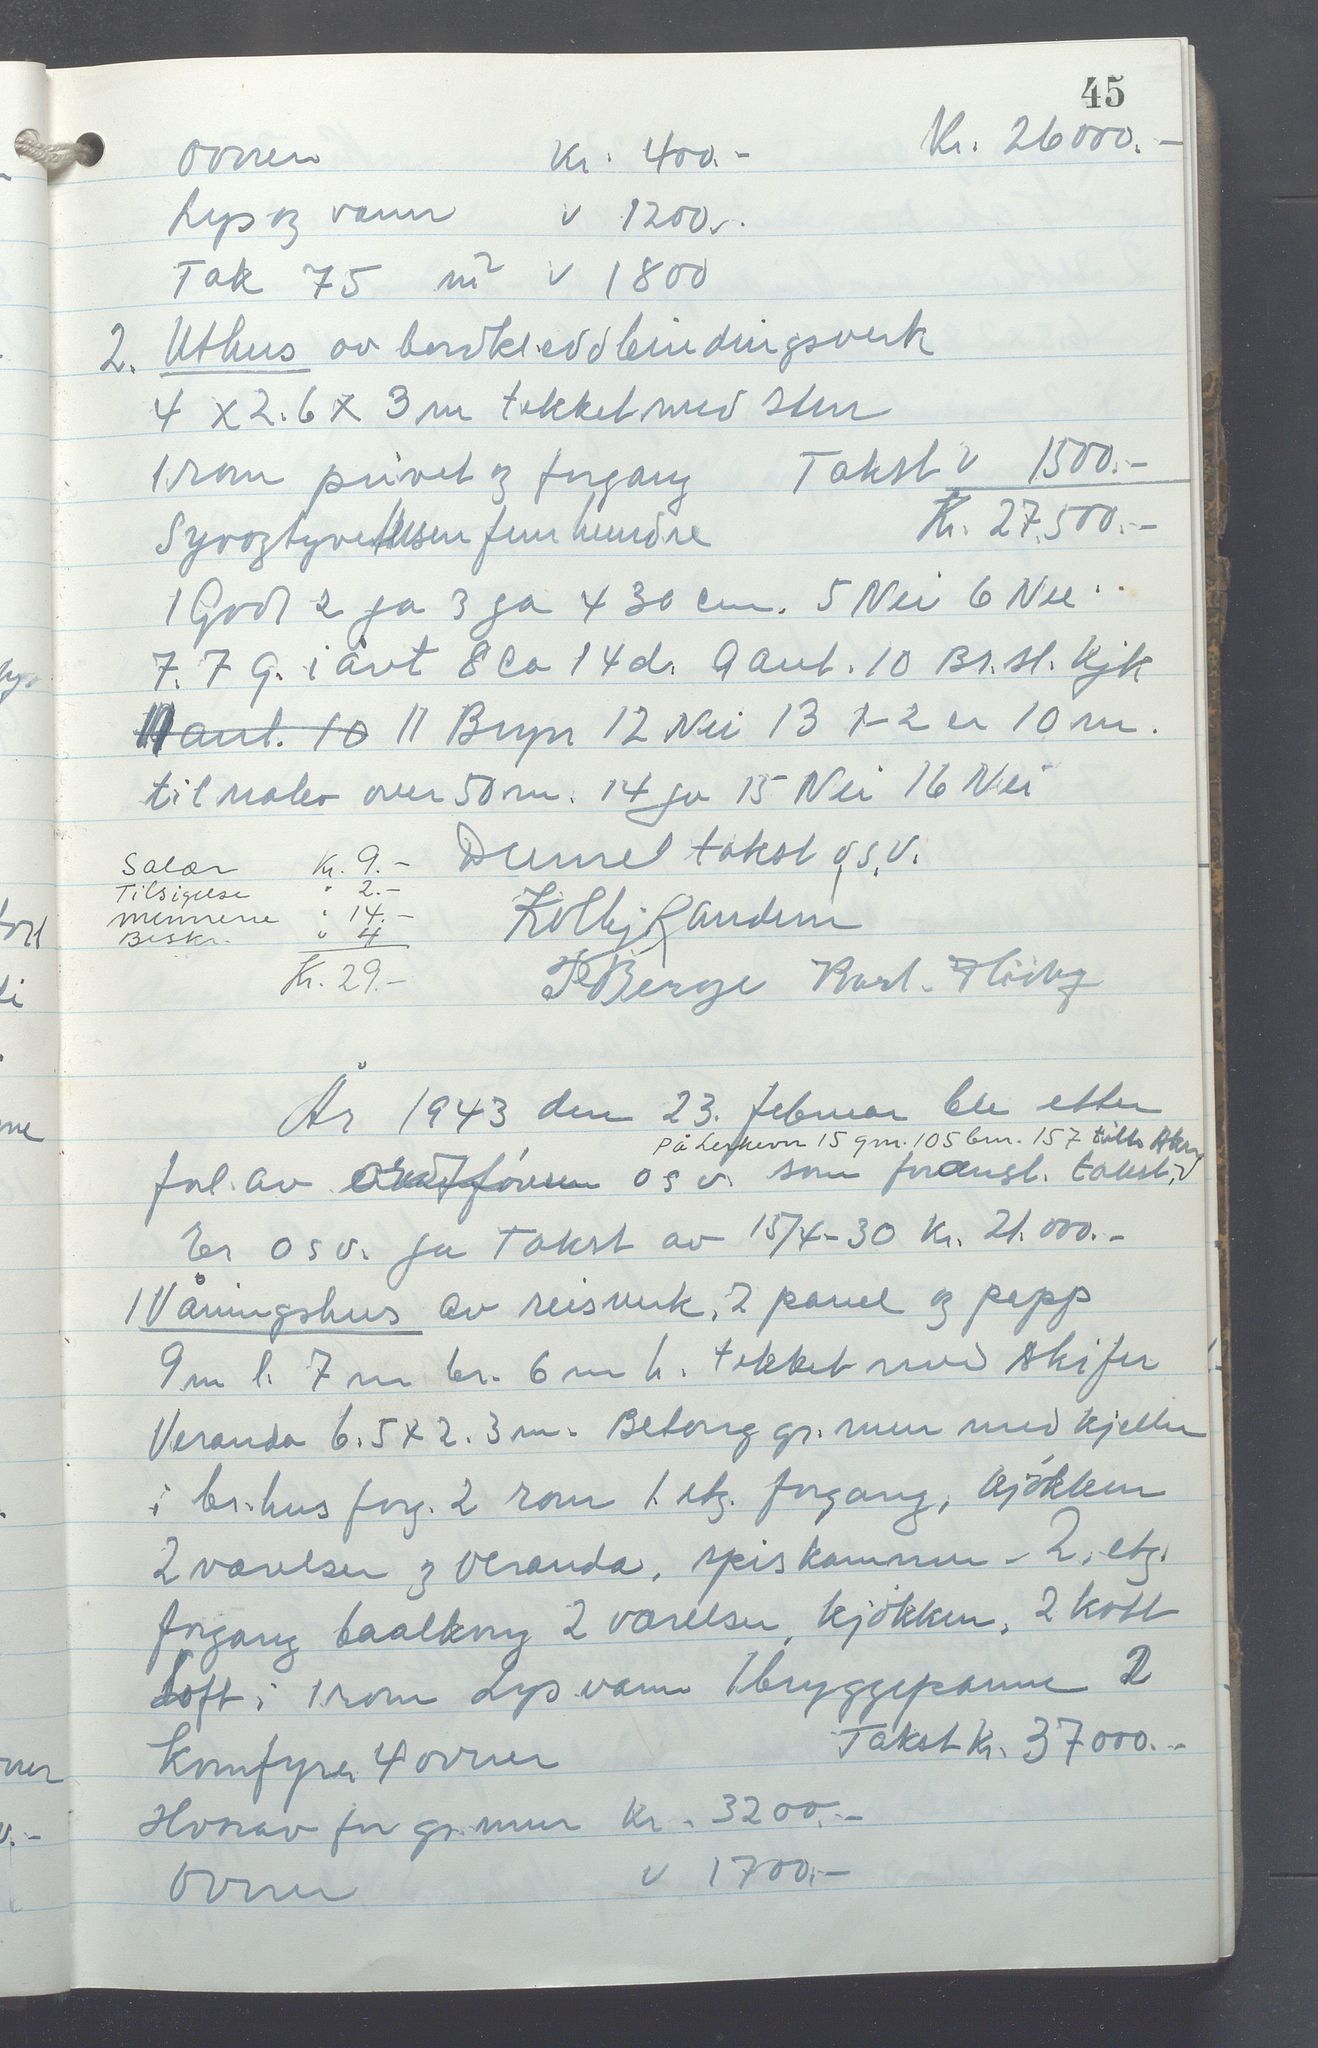 45
ovnen Kr. 400.- Kr. 26000.-
Lys og vann " 1200.-
Tak 75 m² " 1800
2. Uthus av bordkledd bindingsverk
4 x 2.6 x 3 m tekket med sten
1 rom privet og forgang Takst " 1500.-
Syvogtyvetusen fem hundre Kr. 27.500.-
1 Godt 2 ja 3 ja 4 30 cm. 5 Nei 6 Nei
7. 7 g. i året 8 ca 14 d. 9 ant. 10 Br.st. Kjk
ant. 10 11 Bryn 12 Nei 13 1-2 er 10 m.
til nabo over 50 m. 14 ja 15 Nei 16 Nei
Denne takst o.s.v.
Salær Kr. 9.-
Tilsigelse " 2.-
Mennene " 14.-
Beskr. " 4
Kr. 29.-
Kolbj Randem
P Berge Karl. Høiby
År 1943 den 23. februar ble etter
på 15 gnr. 105 bnr. 157
forl. av o s v. som forangl. takst.
Er o s v. ja Takst av 15/4-30 Kr. 21.000.-
1 Våningshus av reisverk, 2 panel og papp
9 m l. 7 m br. 6 m h. tekket med skifer
Veranda 6.5 x 2.3 m. Betong gr. mur med kjeller
i br.hus forg. 2 rom 1. etg. forgang, kjøkken
2 værelser og veranda, spiskammer - 2. etg.
forgang baalkong 2 værelser, kjøkken, 2 kott
Loft i 1 rom Lys vann 1 bryggepanne 2
komfyrer 4 ovner Takst Kr. 37000.-
Hvorav for gr. mur Kr. 3200.-
Ovner " 1700.-